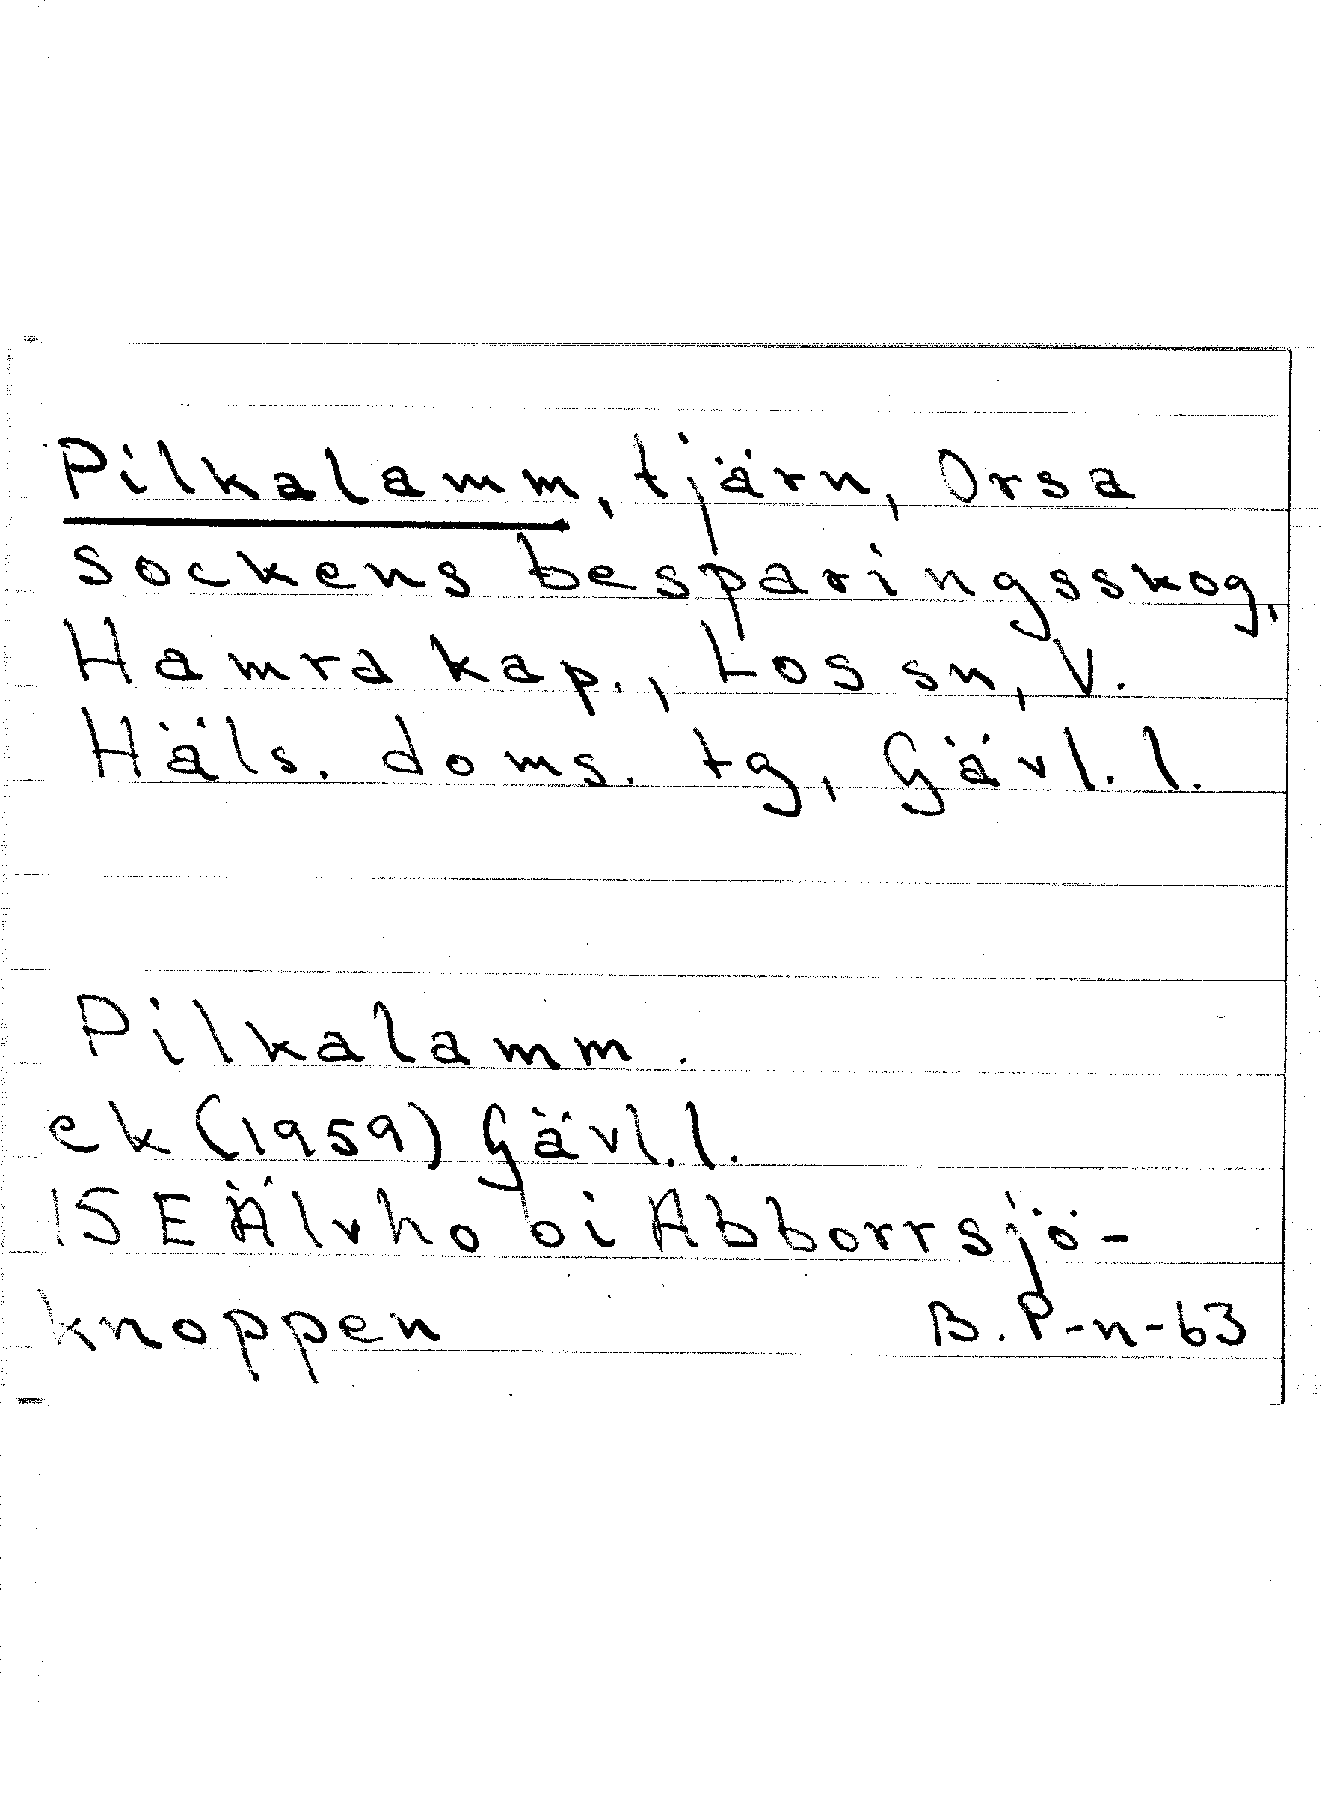 Pilkalamm, tjärn, Orsa
sockens besparingsskog,
Hamra kap., Los sn, V.
Häls. doms. tg, Gävl. l.
Pilkalamm.
ek (1959) Gävl. l.
15E Älvho bi Abborrsjö-
knoppen B. P-n-63